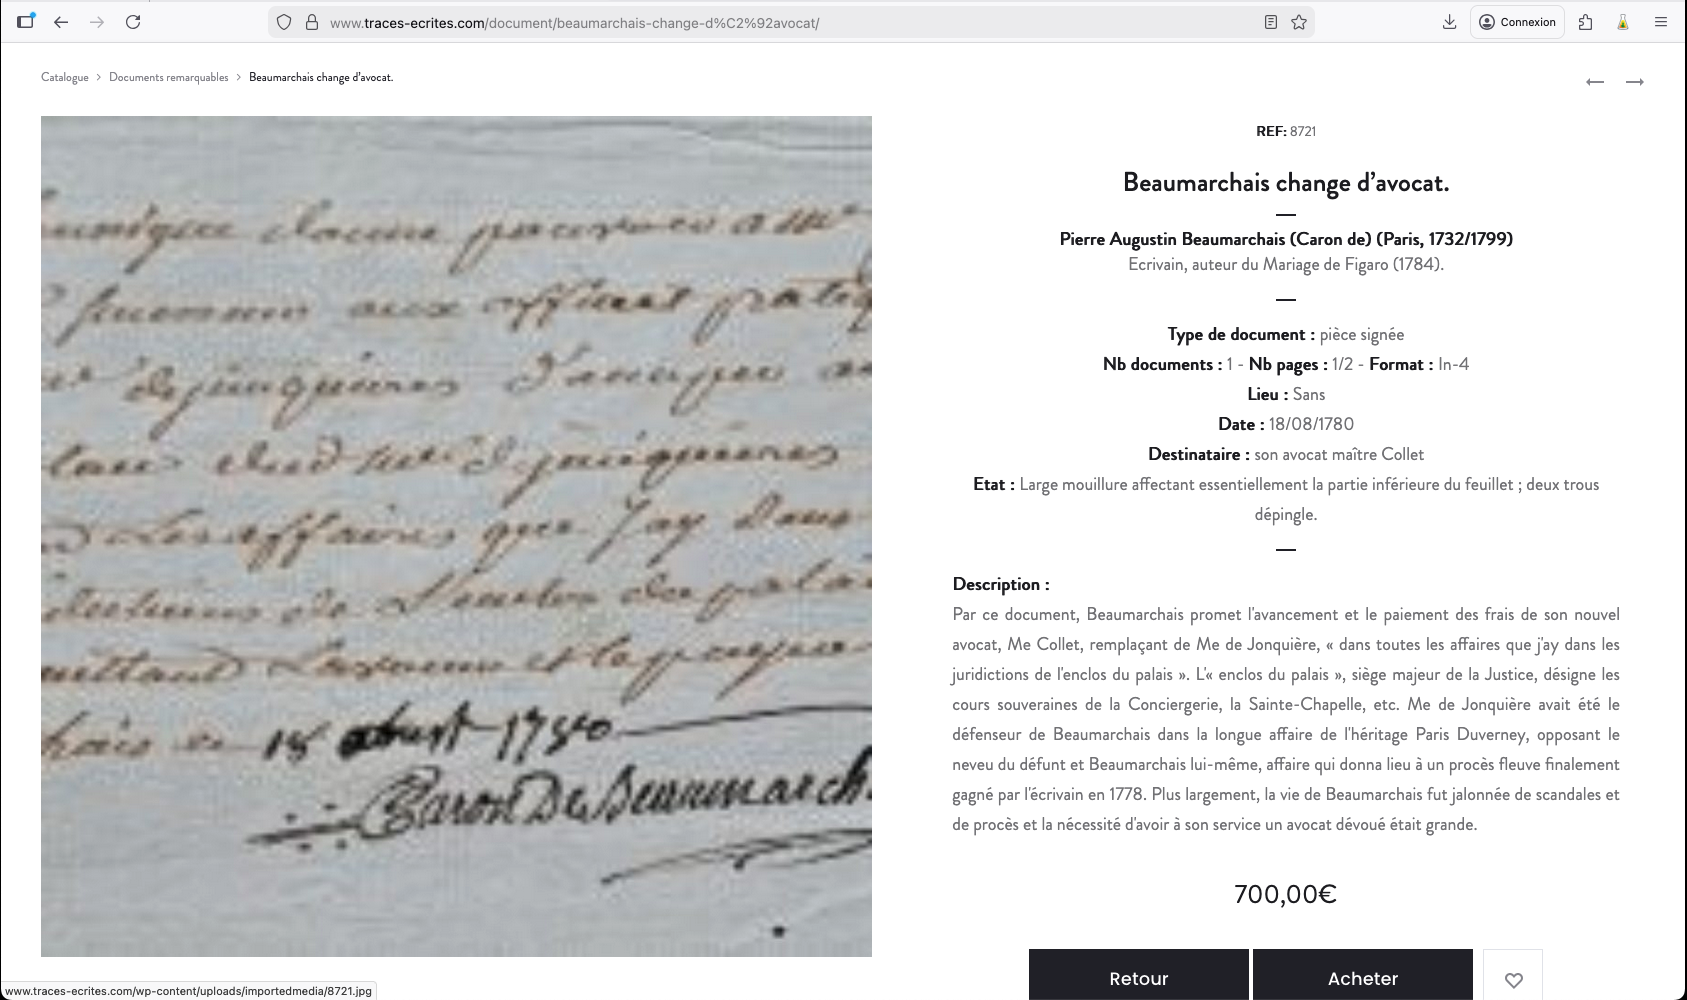 www.traces-ecrites.com/document/beaumarchais-change-d%C2%92avocat/
Connexion
Catalogue > Documents remarquables > Beaumarchais change d’avocat.
aux officiers
de jonquieres
de jonquieres
Les affaires que j'ay dans
de L'enclos du palai
18 aoust 1780
Caron De Beaumarch
REF: 8721
Beaumarchais change d’avocat.
Pierre Augustin Beaumarchais (Caron de) (Paris, 1732/1799)
Ecrivain, auteur du Mariage de Figaro (1784).
Type de document : pièce signée
Nb documents : 1 - Nb pages : 1/2 - Format : In-4
Lieu : Sans
Date : 18/08/1780
Destinataire : son avocat maître Collet
Etat : Large mouillure affectant essentiellement la partie inférieure du feuillet ; deux trous
dépingle.
Description :
Par ce document, Beaumarchais promet l'avancement et le paiement des frais de son nouvel
avocat, Me Collet, remplaçant de Me de Jonquière, « dans toutes les affaires que j'ay dans les
juridictions de l'enclos du palais ». L'« enclos du palais », siège majeur de la Justice, désigne les
cours souveraines de la Conciergerie, la Sainte-Chapelle, etc. Me de Jonquière avait été le
défenseur de Beaumarchais dans la longue affaire de l'héritage Paris Duverney, opposant le
neveu du défunt et Beaumarchais lui-même, affaire qui donna lieu à un procès fleuve finalement
gagné par l'écrivain en 1778. Plus largement, la vie de Beaumarchais fut jalonnée de scandales et
de procès et la nécessité d'avoir à son service un avocat dévoué était grande.
700,00€
Retour
Acheter
www.traces-ecrites.com/wp-content/uploads/importedmedia/8721.jpg